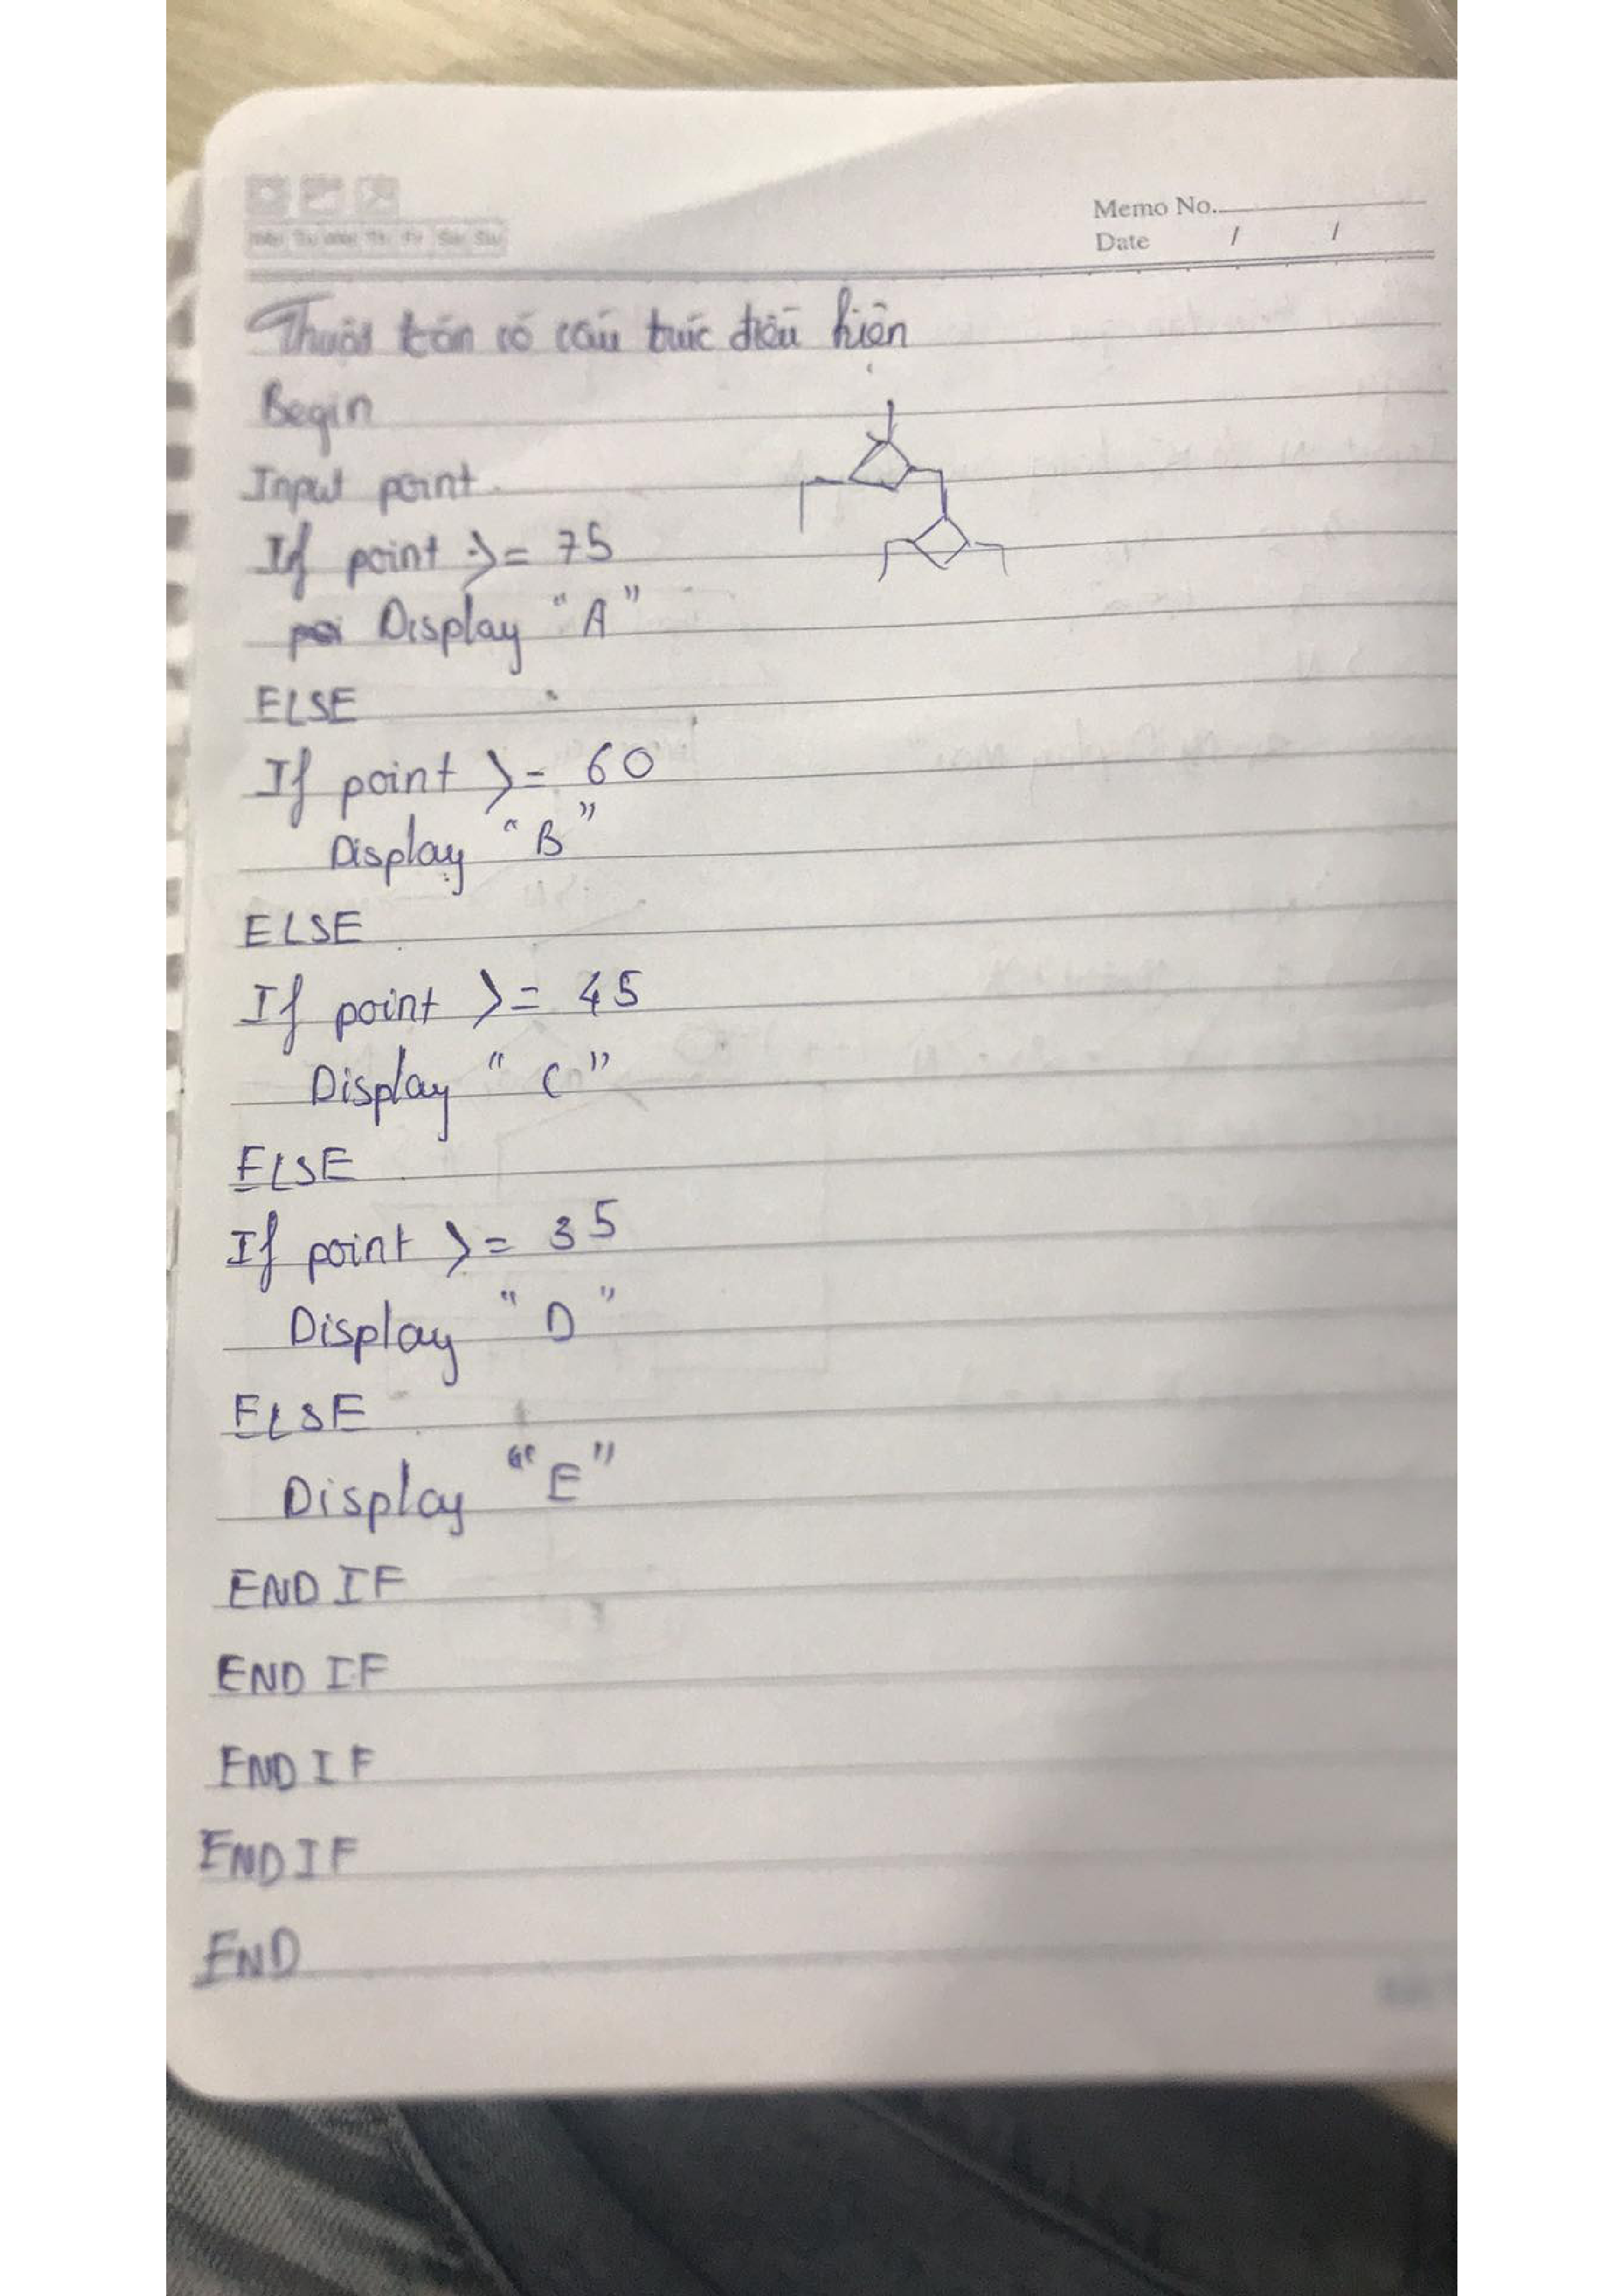 Memo No.
Date / /
Thuật toán có cấu trúc điều kiện
Begin
Input point
If point >= 75
Display "A"
ELSE
If point >= 60
Display "B"
ELSE
If point >= 45
Display "C"
ELSE
If point >= 35
Display "D"
ELSE
Display "E"
END IF
END IF
END IF
END IF
END